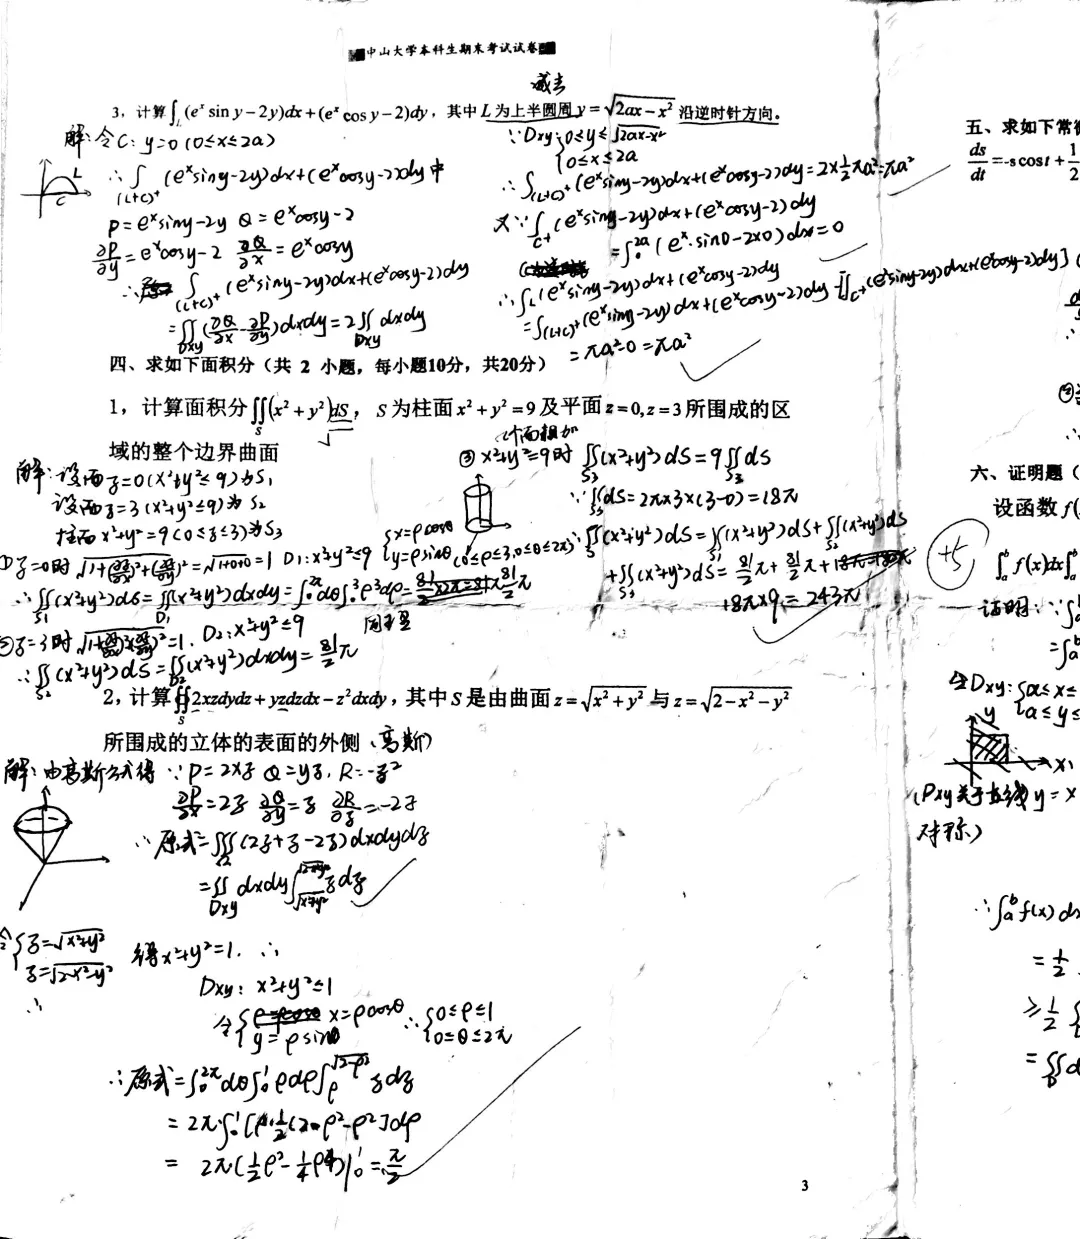 中山大学本科生期末考试试卷
减去
3，计算∫_L (e^x sin y − 2y)dx + (e^x cos y − 2)dy，其中 L 为上半圆周 y = √(2ax − x²) 沿逆时针方向。
解：令C: y=0 (0≤x≤2a)
L
C
∴ ∫_{(L+C)^+} (e^x siny−2y)dx+(e^x cosy−2)dy 中
P=e^x siny−2y Q=e^x cosy−2
∂P/∂y=e^x cosy−2 ∂Q/∂x=e^x cosy
∴ ∫_{(L+C)^+} (e^x siny−2y)dx+(e^x cosy−2)dy
=∬_{Dxy} (∂Q/∂x−∂P/∂y)dxdy=2∬_{Dxy} dxdy
∵Dxy {0≤y≤√(2ax−x²)
0≤x≤2a
∴ ∫_{(L+C)^+} (e^x siny−2y)dx+(e^x cosy−2)dy=2×½πa²=πa²
又∵∫_{C^+} (e^x siny−2y)dx+(e^x cosy−2)dy
=∫_0^{2a} (e^x·sin0−2×0)dx=0
∴∫_L (e^x siny−2y)dx+(e^x cosy−2)dy
=∫_{(L+C)^+} (e^x siny−2y)dx+(e^x cosy−2)dy−[∫_{C^+} (e^x siny−2y)dx+(e^x cosy−2)dy]
=πa²−0=πa²
四、求如下面积分（共 2 小题，每小题10分，共20分）
1，计算面积分∬_S (x² + y²)dS，S 为柱面 x² + y² = 9 及平面 z = 0, z = 3 所围成的区
域的整个边界曲面
解：设面z=0(x²+y²≤9)为S₁
设面z=3(x²+y²≤9)为S₂
柱面x²+y²=9(0≤z≤3)为S₃
①z=0时 √(1+(∂z/∂x)²+(∂z/∂y)²)=√(1+0+0)=1 D₁:x²+y²≤9 {x=ρcosθ
y=ρsinθ (0≤ρ≤3,0≤θ≤2π)
∴∬_{S₁}(x²+y²)dS=∬_{D₁}(x²+y²)dxdy=∫_0^{2π}dθ∫_0^3ρ³dρ=81/2π
同理
②z=3时 √(1+(∂z/∂x)²+(∂z/∂y)²)=1. D₂:x²+y²≤9
∴∬_{S₂}(x²+y²)dS=∬_{D₂}(x²+y²)dxdy=81/2π
个面相加
③x²+y²=9时 ∬_{S₃}(x²+y²)dS=9∬_{S₃}dS
∵∬_{S₃}dS=2π×3×(3−0)=18π
∴∬_S(x²+y²)dS=∬_{S₁}(x²+y²)dS+∬_{S₂}(x²+y²)dS
+∬_{S₃}(x²+y²)dS=81/2π+81/2π+
18π×9=243π
2，计算∯_S 2xzdydz + yzdzdx − z²dxdy，其中 S 是由曲面 z = √(x² + y²) 与 z = √(2 − x² − y²)
所围成的立体的表面的外侧（高斯）
解：由高斯公式得 ∵P=2xz Q=yz. R=−z²
∂P/∂x=2z ∂Q/∂y=z ∂R/∂z=−2z
∴原式=∭_Ω(2z+z−2z)dxdydz
=∬_{Dxy}dxdy∫_{√(x²+y²)}^{√(2−x²−y²)}zdz
令{z=√(x²+y²)
z=√(2−x²−y²) 得x²+y²=1. ∴
Dxy: x²+y²≤1
∴
令{x=ρcosθ
y=ρsinθ ∴{0≤ρ≤1
0≤θ≤2π
∴原式=∫_0^{2π}dθ∫_0^1ρdρ∫_ρ^{√(2−ρ²)}zdz
=2π∫_0^1[ρ·½(2−ρ²−ρ²]dρ
=2π(½ρ²−¼ρ⁴)|_0^1=π/2
3
五、求如下常
ds/dt = −s cos t + 1/2
六、证明题（
设函数 f(
+5
∫_a^b f(x)dx∫_a^b
证明：∵∫_a^b
=∫_a^b
令Dxy:{a≤x≤
a≤y≤
y
x
(Dxy关于直线y=x
对称)
∴∫_a^b f(x)dx
=½
≥½
=∬_D